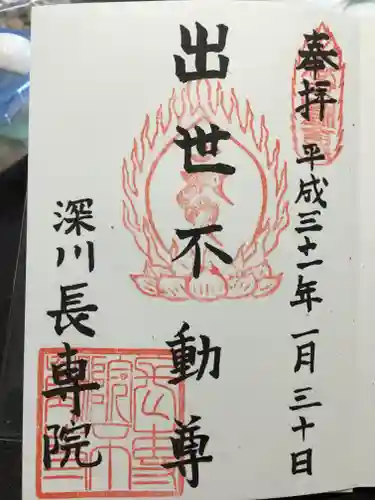 奉拝
平成三十一年一月三十日
出世不動尊
深川長専院